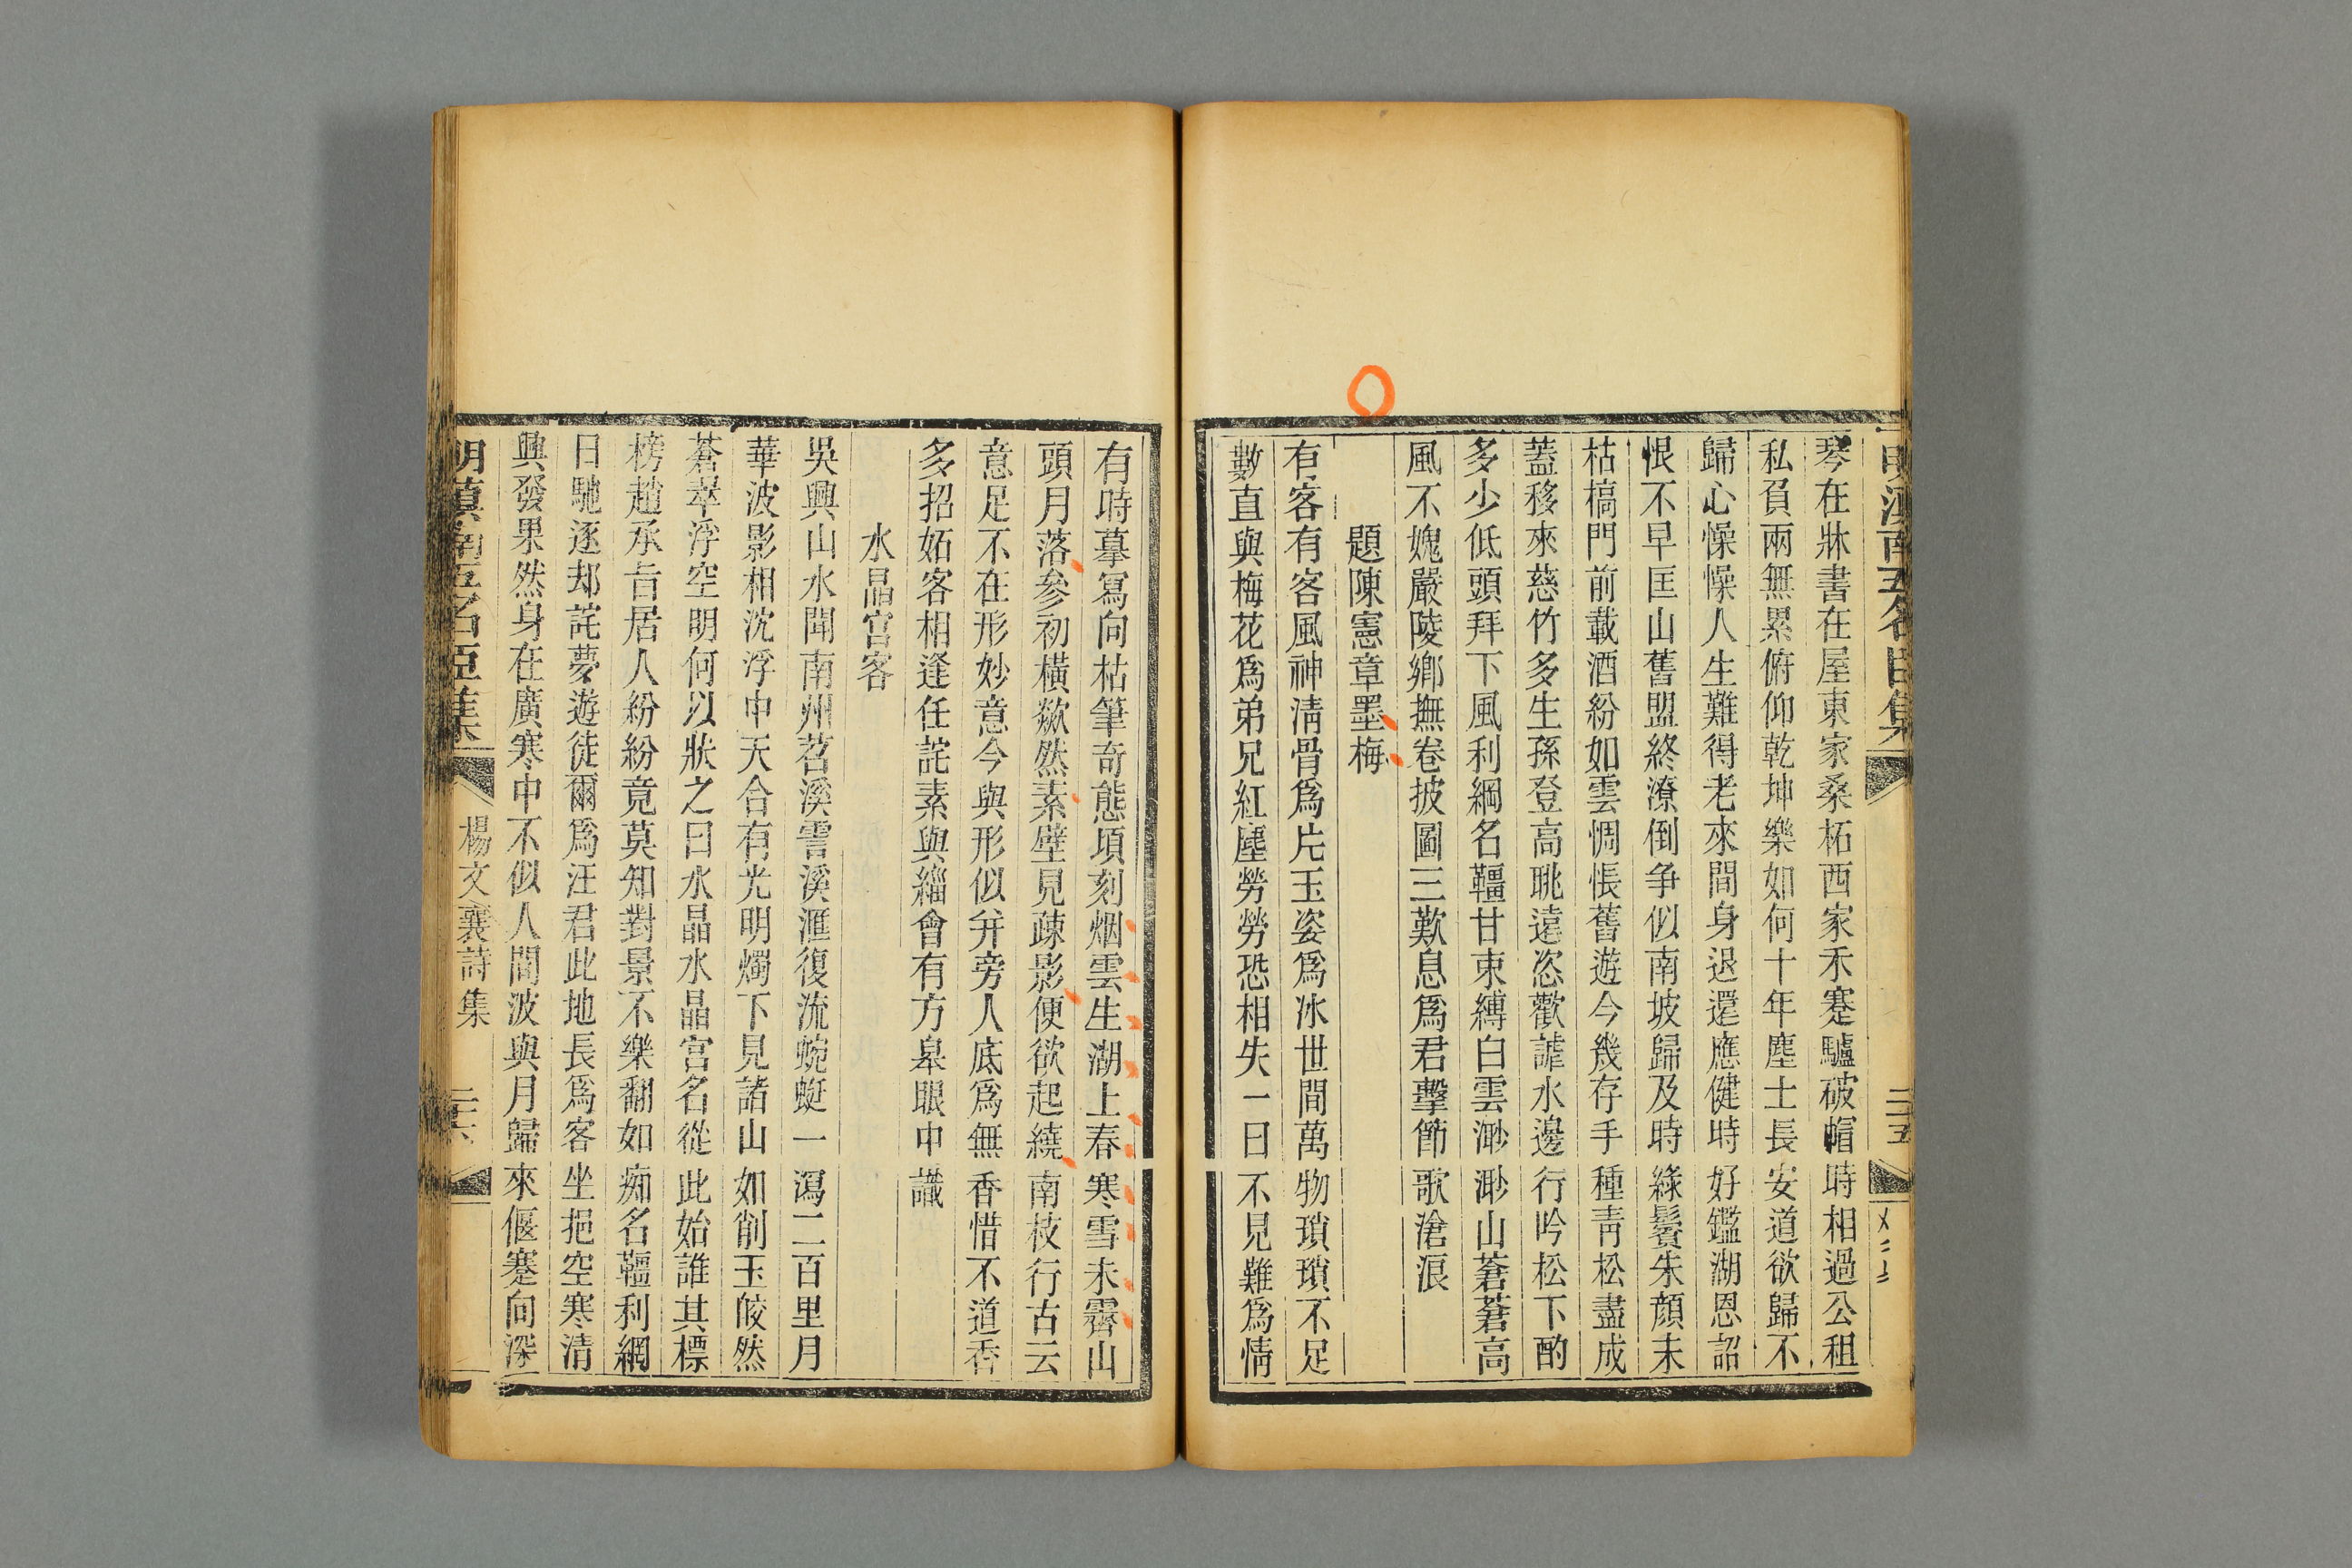 琴在牀書在屋東家桑柘西家禾蹇驢破帽時相過公租
私負兩無累俯仰乾坤樂如何十年塵土長安道欲歸不
歸心懆懆人生難得老來間身退還應健時好鑑湖恩詔
恨不早匡山舊盟終潦倒争似南坡歸及時綠鬢朱顔未
枯槁門前載酒紛如雲惆悵舊遊今幾存手種靑松盡成
蓋移來慈竹多生孫登高眺遠恣歡謔水邊行吟松下酌
多少低頭拜下風利綱名韁甘束縛白雲渺渺山蒼蒼高
風不媿嚴陵鄉撫卷披圖三歎息爲君擊節歌滄浪
題陳憲章墨梅
有客有客風神淸骨爲片玉姿爲冰世間萬物瑣瑣不足
數直與梅花爲弟兄紅塵勞勞恐相失一日不見難爲情
有時摹寫向枯筆奇態項刻烟雲生湖上春寒雪未霽山
頭月落參初橫歘然素壁見疎影便欲起繞南枝行古云
意足不在形妙意今與形似并旁人底爲無香惜不道香
多招妬客相逢任詫素與緇會有方皋眼中識
水晶宮客
吳興山水聞南州苕溪霅溪滙復流蜿蜒一瀉二百里月
華波影相沈浮中天合有光明燭下見諸山如削玉皎然
蒼翠浮空明何以狀之曰水晶水晶宮名從此始誰其標
榜趙承旨居人紛紛竟莫知對景不樂翻如痴名韁利網
日馳逐却詫夢遊徒爾爲汪君此地長爲客坐挹空寒清
興發果然身在廣寒中不似人間波與月歸來偃蹇向深
楊文襄詩集